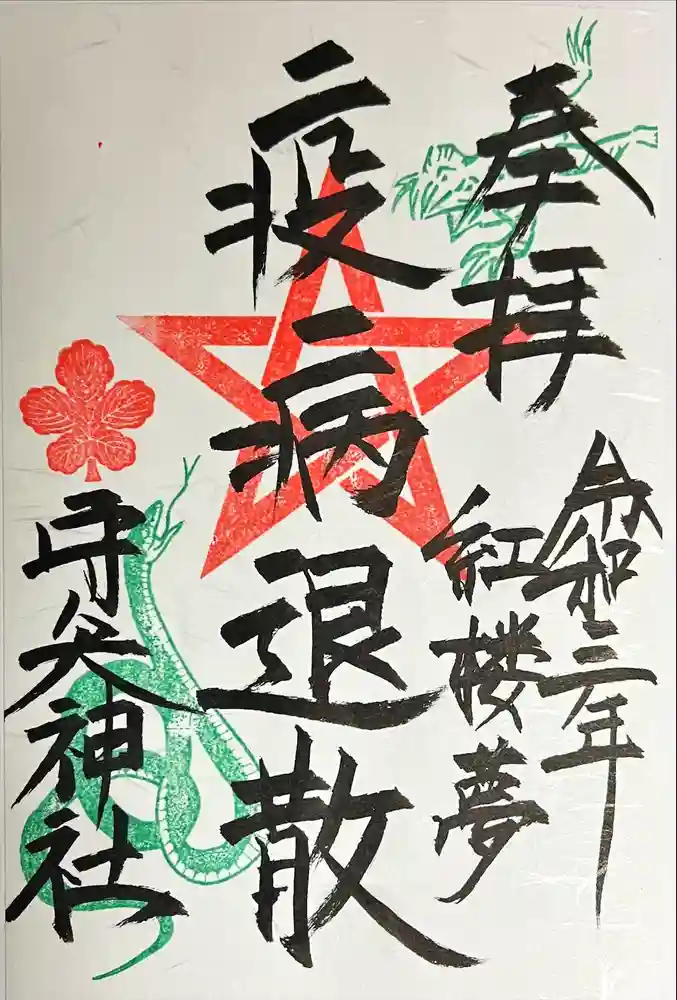 奉拝
令和三年
紅楼夢
疫病退散
守矢神社